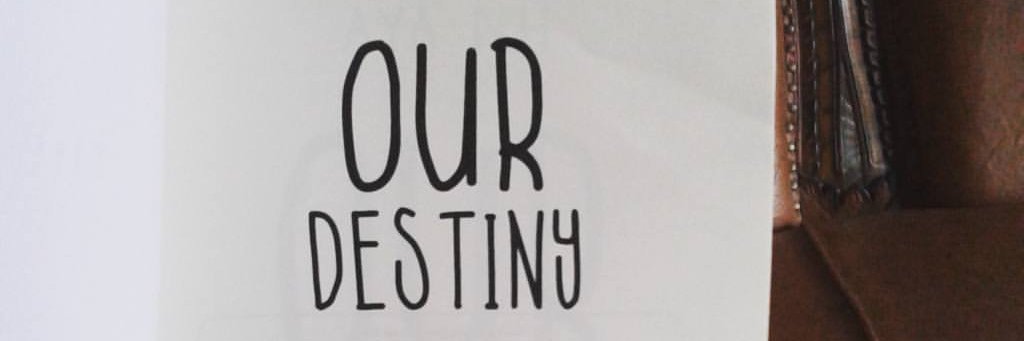 OUR
DESTINY